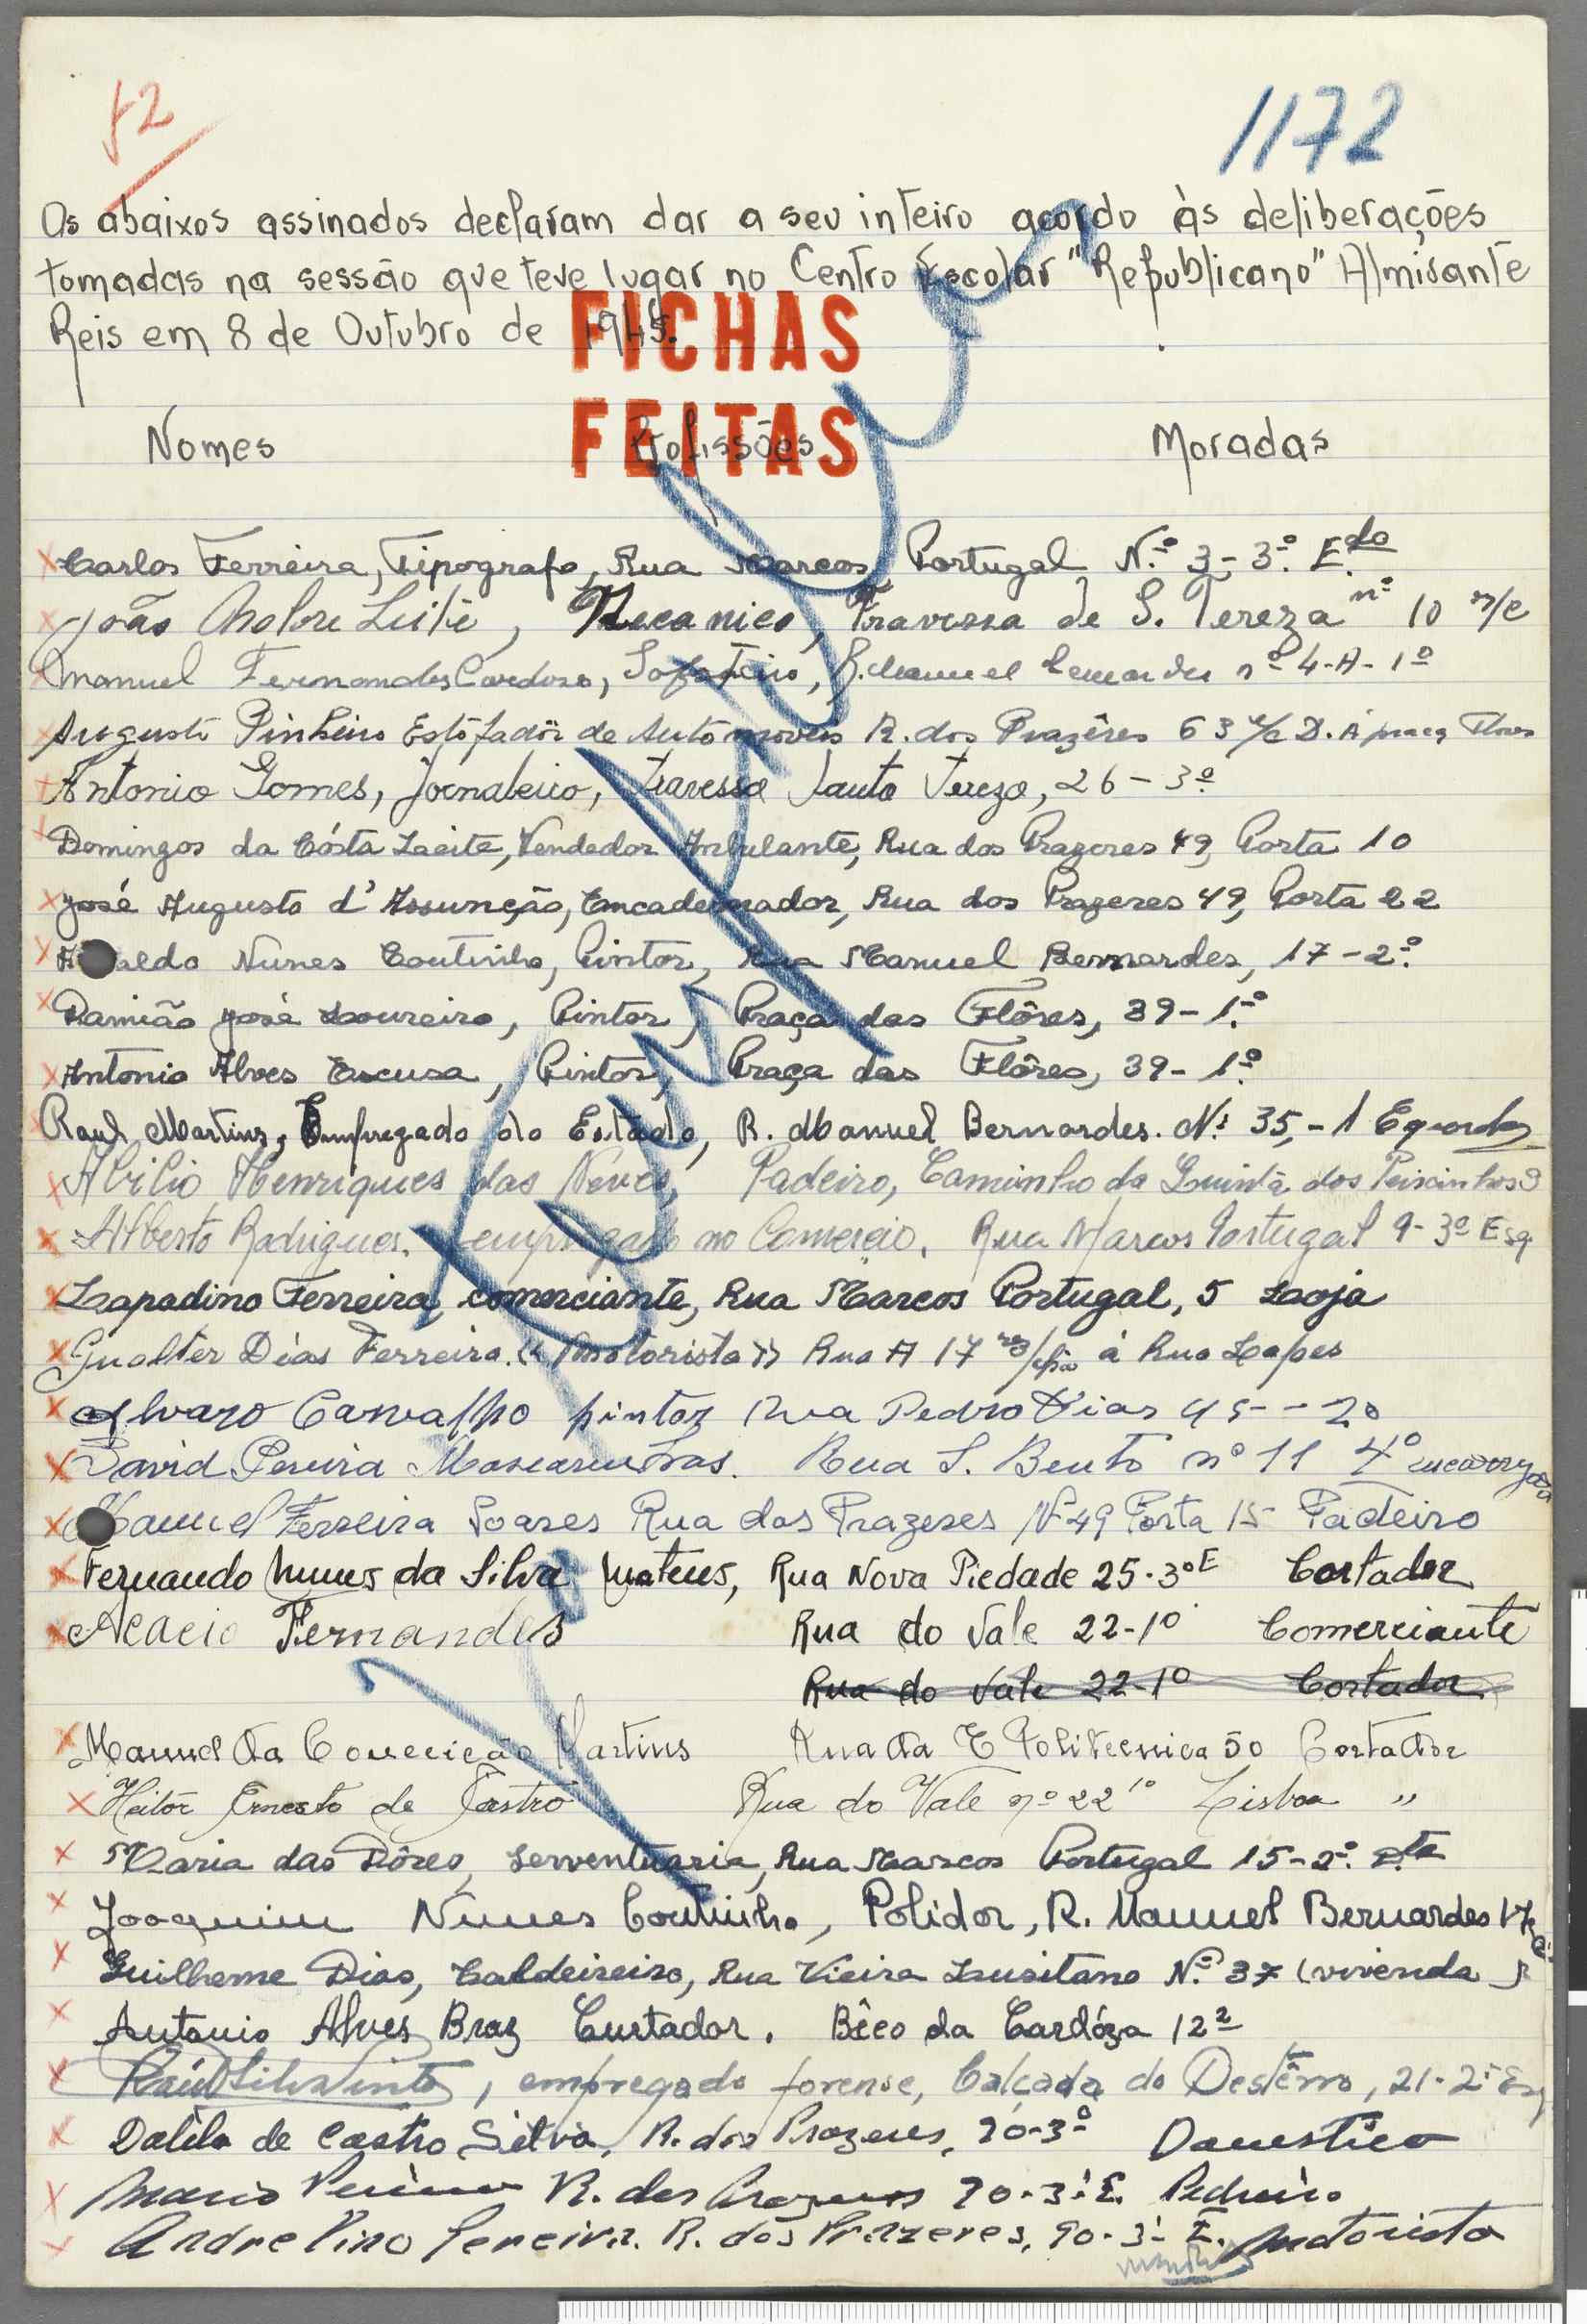 52
1172
Os abaixos assinados declaram dar a seu inteiro acordo às deliberações
tomadas na sessão que teve lugar no Centro Escolar "Republicano" Almirante
Reis em 8 de Outubro de 1945.
FICHAS
FEITAS
Nomes Profissões Moradas
Carlos Ferreira, Tipografo, Rua Marcos Portugal N.º 3-3.º E.do
João Leite, Mecanico, Travessa de S. Tereza nº 10 r/c
Manuel Fernandes Cardoso, Sapateiro, R. Manuel Bernardes nº 4-A-1º
Augusto Pinheiro Estofador de Automoveis R. dos Prazêres 63 r/c D. Á praça Flores
Antonio Gomes, Jornaleiro, travessa Santa Tereza, 26-3º
Domingos da Cósta Laeite, Vendedor Anbulante, Rua dos Prazeres 49, Porta 10
José Augusto d'Assunção, Encadernador, Rua dos Prazeres 49, Porta 22
Nunes Coutinho, Pintor, Rua Manuel Bernardes, 17-2.º
Damião José Loureiro, Pintor, Praça das Flôres, 39-1.º
Antonio Alves Escusa, Pintor, Praça das Flôres, 39-1.º
Raul Martins, Empregado do Estado, R. Manuel Bernardes. N.º 35,-1 Equerdo
Abilio Henriques das Neves, Padeiro, Caminho da Quinta dos Peixinhos 9
Alberto Rodrigues, empregado no Comercio, Rua Marcos Portugal 9-3º Esq.
Lapadino Ferreira, comerciante, Rua Marcos Portugal, 5 Looja
Gualter Dias Ferreira. "Motorista" Rua A 17 rez/chão á Rua Lapes
Alvaro Carvalho pintor Rua Pedro Dias 45--2º
David Pereira Mascarenhas. Rua S. Bento nº 11 4º
Manuel Ferreira Soares Rua dos Prazeres Nº 49 Porta 15 Padeiro
Fernando Nunes da Silva Mateus, Rua Nova Piedade 25-3º E Cortador
Acacio Fernandes Rua do Vale 22-1º Comerciante
Rua do Vale 22-1º Cortador
Manuel da Conceição Martins Rua da E Politecnica 50 Cortador
Heitor Ernesto de Castro Rua do Vale nº 22 1º Lisboa "
Maria das Dôres, Serventuaria, Rua Marcos Portugal 15-2.º
Joaquim Nunes Coutinho, Polidor, R. Manuel Bernardes 17
Guilherme Dias, Caldeireiro, Rua Vieira Lusitano N.º 37 (vivenda
Antonio Alves Braz Curtador. Bêco da Cardóza 12 2
Raúl Silva Pinto, empregado forense, Calçada do Destêrro, 21-2º Esq
Dalila de Castro Silva, R. dos Prazeres, 90-3º Domestica
Mario Pereira R. dos Prazeres 90-3º E. Pedreiro
Andre Pino Pereira. R. dos Prazeres, 90-3º E. Motorista